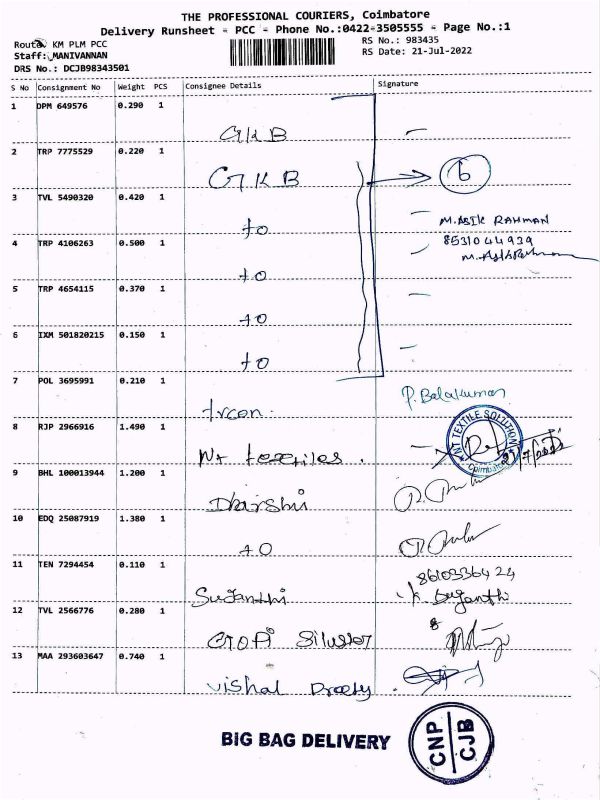 THE PROFESSIONAL COURIERS, Coimbatore
Delivery Runsheet - PCC - Phone No.:0422-3505555 - Page No.:1
Route: KM PLM PCC
RS No.: 983435
Staff: MANIVANNAN
RS Date: 21-Jul-2022
DRS No.: DCJB98343501
S No Consignment No Weight PCS Consignee Details Signature
1 DPM 649576 0.290 1
GKB
2 TRP 7775529 0.220 1
GKB 6
3 TVL 5490320 0.420 1
to M. ASIK RAHMAN
4 TRP 4106263 0.500 1 8531044939
to
5 TRP 4654115 0.370 1
to
6 IXM 501820215 0.150 1
to
7 POL 3695991 0.210 1
P. Balakumar
8 RJP 2966916 1.490 1
NT TEXTILE SOLUTION
Coimbatore
9 BHL 100013944 1.200 1
Dharshni
10 EDQ 25087919 1.380 1
to
11 TEN 7294454 0.110 1
8610336424
Suganthi K. Suganthi
12 TVL 2566776 0.280 1
13 MAA 293603647 0.740 1
Vishal
BIG BAG DELIVERY
CNP
CJB